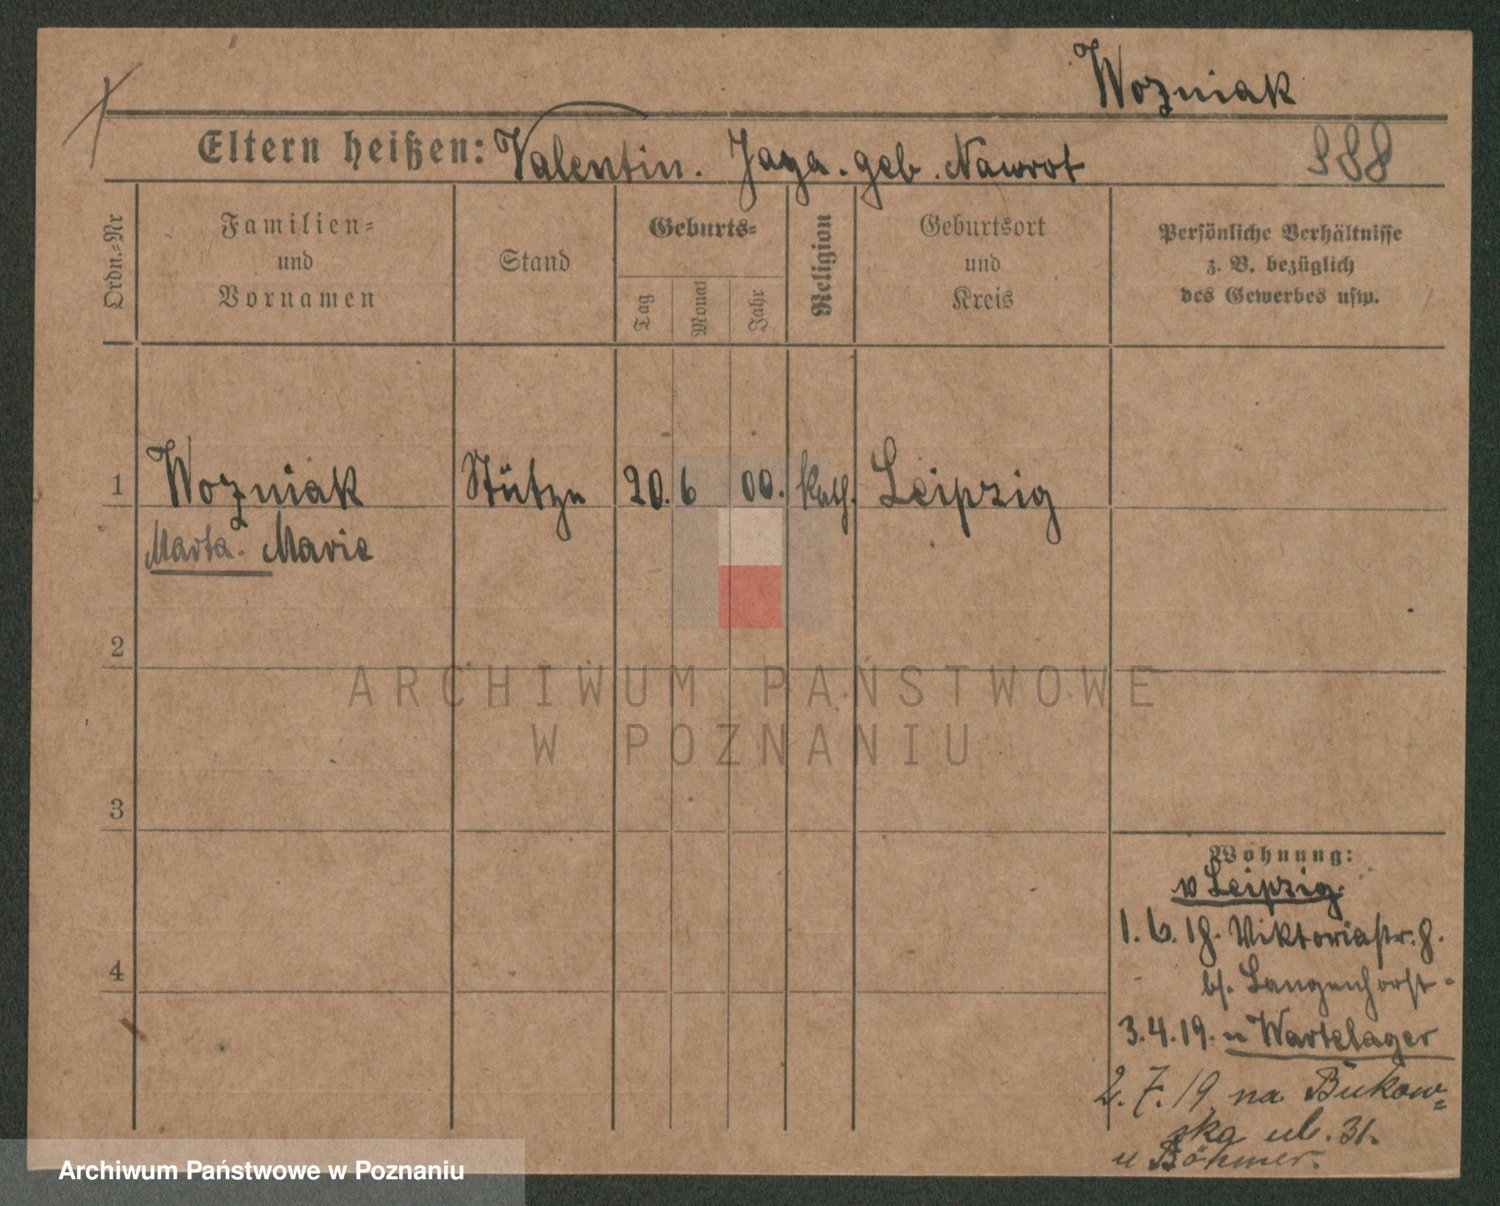 Wozniak
Eltern heißen: Valentin. Jaga. geb. Nawrot
988
Ordn.=Nr
Familien=
und
Vornamen
Stand
Geburts=
Tag
Monat
Jahr
Religion
Geburtsort
und
Kreis
Persönliche Verhältnisse
z. B. bezüglich
des Gewerbes usw.
1 Wozniak Stütze 20. 6 00. kath. Leipzig
Marta. Marie
2
ARCHIWUM PAŃSTWOWE
W POZNANIU
3
Wohnung:
v Leipzig.
1. 6. 18. Viktoriastr. 8.
bs. Langenhorst-
4
3.4.19. n Wartelager
2.7.19 na Bukow=
ska ul. 31.
u Böhmer.
Archiwum Państwowe w Poznaniu